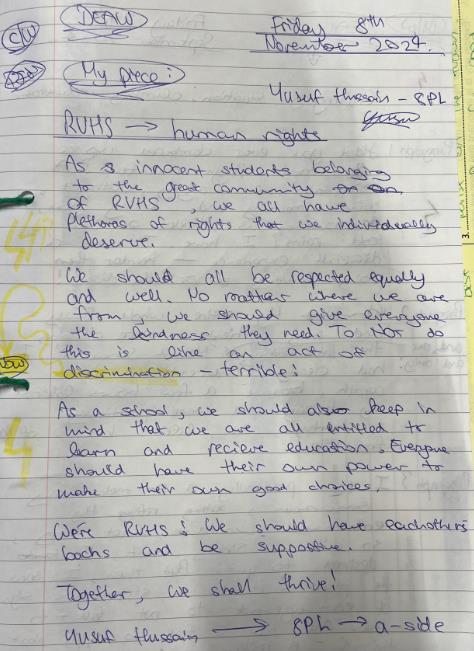 C/W
DEAW
Friday 8th
November 2024.
My piece:
Yusuf Hussain - 8PL
RVHS → human rights
As innocent students belonging
to the great community
of RVHS, we all have
plethoras of rights that we individually
deserve.
We should all be respected equally
and well. No matter where we are
from, we should give everyone
the kindness they need. To NOT do
this is like an act of
discrimination - terrible!
As a school, we should also keep in
mind that we are all entitled to
learn and recieve education. Everyone
should have their own power to
make their own good choices.
We're RVHS! We should have eachothers
backs and be supportive.
Together, we shall thrive!
Yusuf Hussain → 8PL → a-side
3.